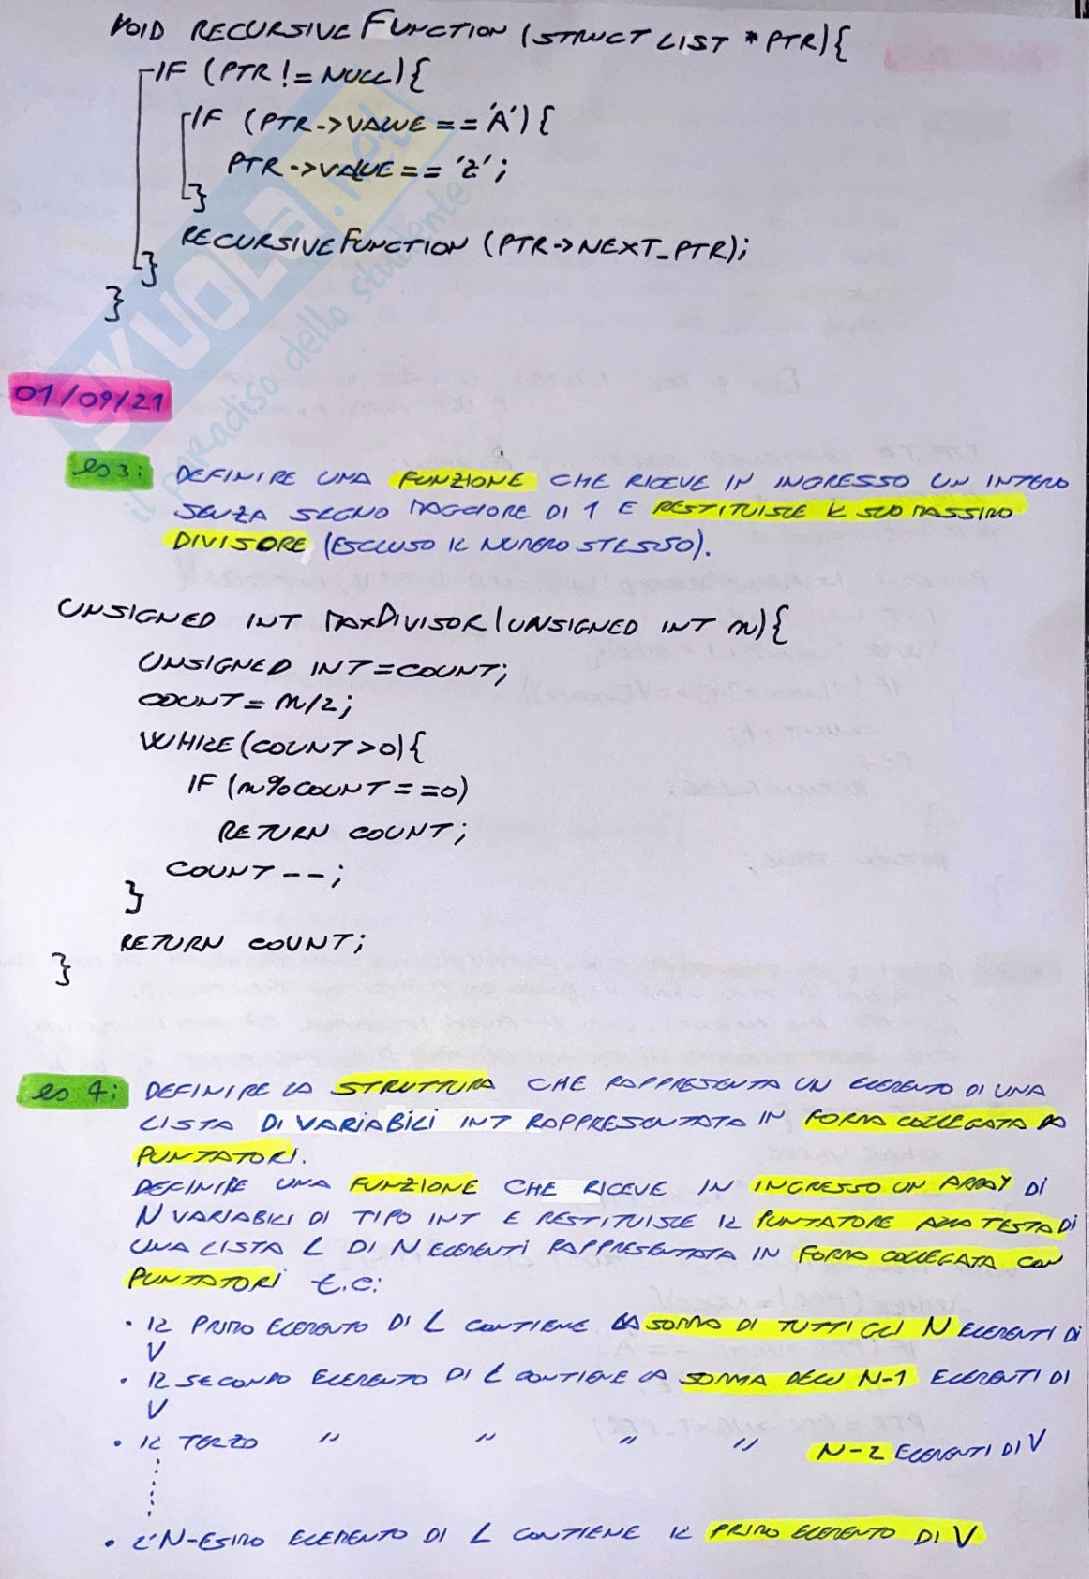 VOID RECURSIVE FUNCTION (STRUCT LIST * PTR){
IF (PTR != NULL){
IF (PTR->VALUE == 'A'){
PTR->VALUE == 'Z';
}
RECURSIVE FUNCTION (PTR->NEXT_PTR);
}
}
SKUOLA.net
il paradiso dello studente
01/09/21
es 3: DEFINIRE UNA FUNZIONE CHE RICEVE IN INGRESSO UN INTERO
SENZA SEGNO MAGGIORE DI 1 E RESTITUISCE IL SUO MASSIMO
DIVISORE (ESCLUSO IL NUMERO STESSO).
UNSIGNED INT MAXDIVISOR(UNSIGNED INT n){
UNSIGNED INT=COUNT;
COUNT= n/2;
WHILE(COUNT>0){
IF (n%COUNT==0)
RETURN COUNT;
COUNT--;
}
RETURN COUNT;
}
es 4: DEFINIRE LA STRUTTURA CHE RAPPRESENTA UN ELEMENTO DI UNA
LISTA DI VARIABILI INT RAPPRESENTATA IN FORMA COLLEGATA DA
PUNTATORI.
DEFINIRE UNA FUNZIONE CHE RICEVE IN INGRESSO UN ARRAY DI
N VARIABILI DI TIPO INT E RESTITUISCE IL PUNTATORE ALLA TESTA DI
UNA LISTA L DI N ELEMENTI RAPPRESENTATA IN FORMA COLLEGATA CON
PUNTATORI t.c:
• IL PRIMO ELEMENTO DI L CONTIENE LA SOMMA DI TUTTI GLI N ELEMENTI DI
V
• IL SECONDO ELEMENTO DI L CONTIENE LA SOMMA DEGLI N-1 ELEMENTI DI
V
• IL TERZO " " " " N-2 ELEMENTI DI V
• L'N-ESIMO ELEMENTO DI L CONTIENE IL PRIMO ELEMENTO DI V